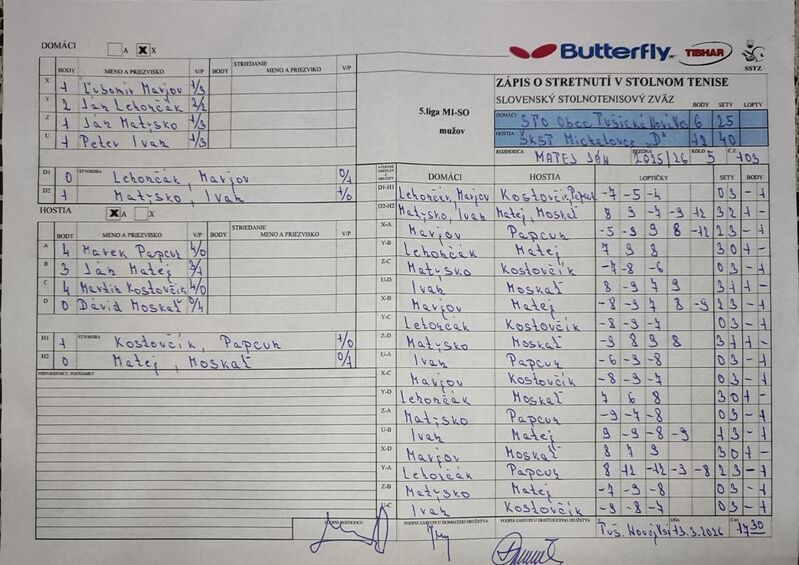 DOMÁCI A X X
Butterfly TIBHAR SSTZ
BODY MENO A PRIEZVISKO V/P BODY STRIEDANIE MENO A PRIEZVIKO V/P
ZÁPIS O STRETNUTÍ V STOLNOM TENISE
SLOVENSKÝ STOLNOTENISOVÝ ZVÄZ BODY SETY LOPTY
X 1 Ľubomír Marjov 1/3
Y 2 Ján Lehončák 2/2
Z 1 Ján Matysko 1/3
U 1 Peter Ivan 1/3
5.liga MI-SO
mužov
DOMÁCI STO Obec Tušická Nová Ves 6 25
HOSTIA ŠKST Michalovce "D" 12 40
ROZHODCA MATEJ JÁN SEZÓNA 2025/26 KOLO 5 Č.Z. 103
D1 0 ŠTVORHRA Lehončák, Marjov 0/1
D2 1 Matysko, Ivan 1/0
HOSTIA X A X
BODY MENO A PRIEZVISKO V/P BODY STRIEDANIE MENO A PRIEZVISKO V/P
A 4 Marek Papcun 4/0
B 3 Ján Matej 3/1
C 4 Martin Kostovčík 4/0
D 0 Dávid Moskaľ 0/4
H1 1 ŠTVORHRA Kostovčík, Papcun 1/0
H2 0 Matej, Moskaľ 0/1
PRIPOMIENKY, POZNÁMKY
DOMÁCI HOSTIA LOPTIČKY SETY BODY
D1-H1 Lehončák, Marjov Kostovčík, Papcun -7 -5 -4 0 3 - 1
D2-H2 Matysko, Ivan Matej, Moskaľ 8 9 -7 -9 12 3 2 1 -
X-A Marjov Papcun -5 -9 9 8 -12 2 3 - 1
Y-B Lehončák Matej 7 9 8 3 0 1 -
Z-C Matysko Kostovčík -7 -8 -6 0 3 - 1
U-D Ivan Moskaľ 8 -9 7 9 3 1 1 -
X-B Marjov Matej -8 -9 7 8 -9 2 3 - 1
Y-C Lehončák Kostovčík -8 -9 -7 0 3 - 1
Z-D Matysko Moskaľ -9 8 9 8 3 1 1 -
U-A Ivan Papcun -6 -9 -8 0 3 - 1
X-C Marjov Kostovčík -8 -9 -7 0 3 - 1
Y-D Lehončák Moskaľ 7 6 8 3 0 1 -
Z-A Matysko Papcun -9 -7 -8 0 3 - 1
U-B Ivan Matej 9 -9 -8 -9 1 3 - 1
X-D Marjov Moskaľ 8 7 9 3 0 1 -
Y-A Lehončák Papcun 8 12 -12 -3 -8 2 3 - 1
Z-B Matysko Matej -7 -9 -8 0 3 - 1
U-C Ivan Kostovčík -8 -8 -7 0 3 - 1
PODPIS ROZHODCU PODPIS ZÁSTUPCU DOMÁCEHO DRUŽSTVA PODPIS ZÁSTUPCU HOSŤUJÚCEHO DRUŽSTVA DŇA ČAS 17 30